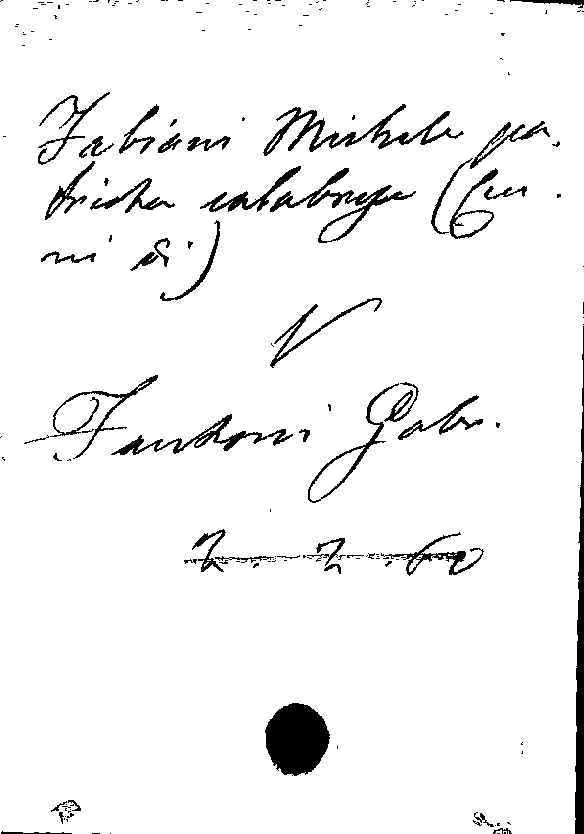 Fabiani Michele pa.
trioto calabrese (Cen.
ni di)
V
Fantoni Gabr.
2. 2. 60